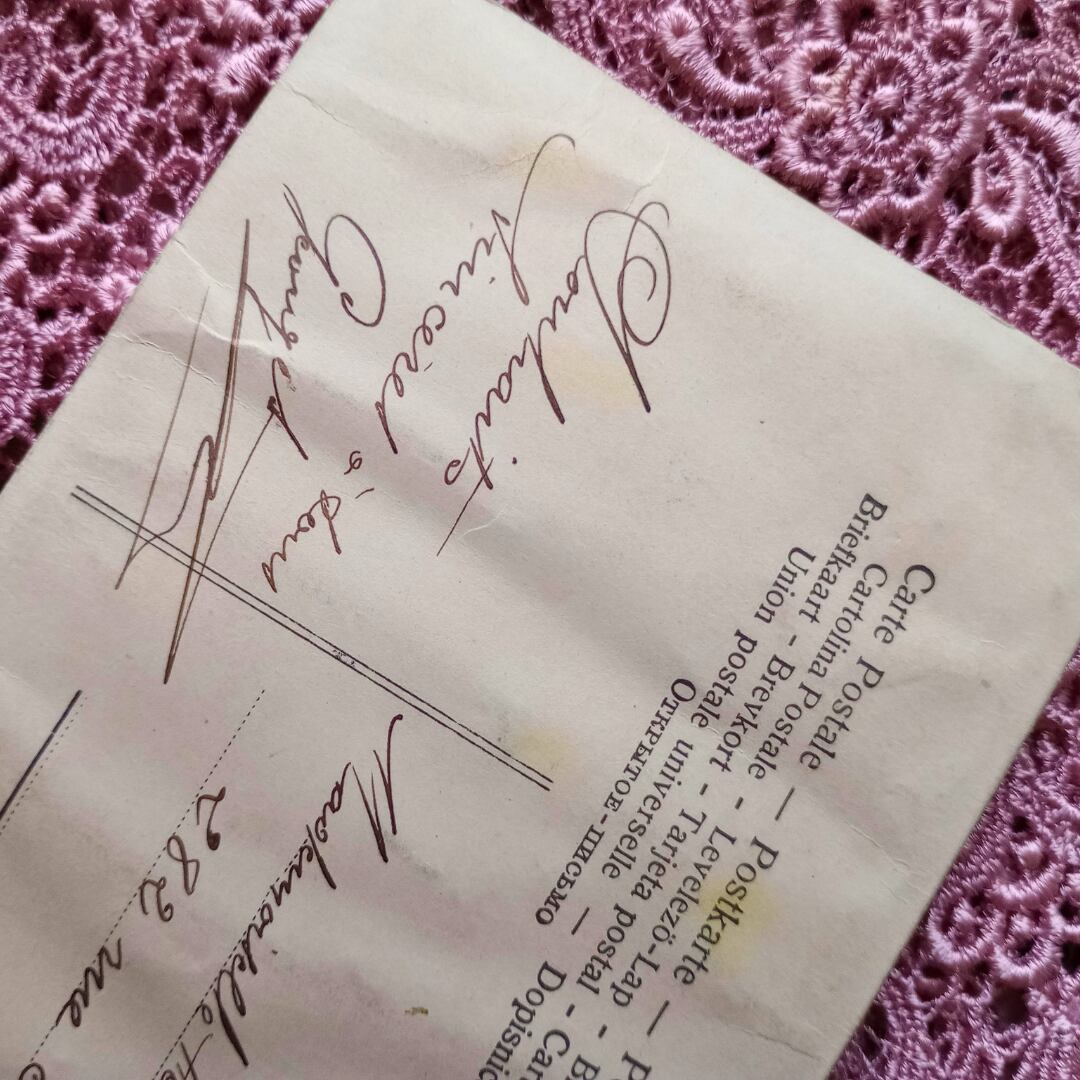 Carte Postale — Postkarte — P
Cartolina Postale - Levelezö-Lap - B
Briefkaart - Brevkort - Tarjeta postal - Car
Union postale universelle — Dopisnic
Открытое-письмо
Souhaits
sincères
à tous
Mademoiselle
282 rue